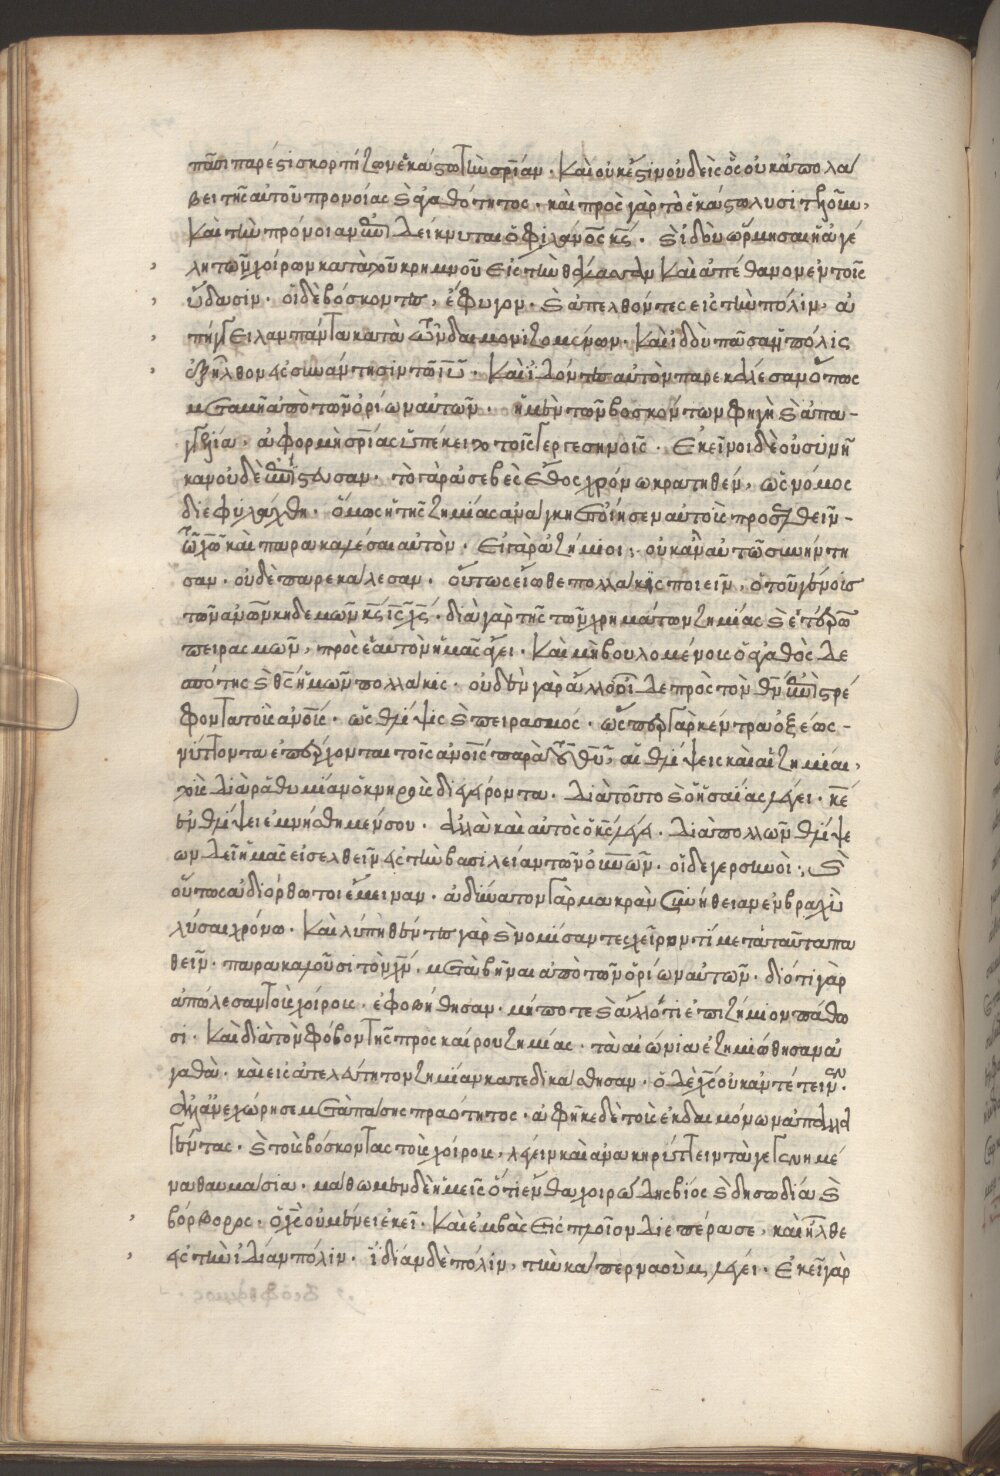 πᾶσι πάρεστι σκορπίζων ἑκάστω τὴν σ̅ρ̅ίαν. Καὶ οὐκ ἔστιν οὐδεὶς ὃς οὐκ ἀπολα
βει τῆς αὐτοῦ προνοίας καὶ ἀγαθότητος. καὶ πρὸς γὰρ τὸ ἑκάστω λυσιτελοῦν,
Καὶ τὴν πρόνοιαν δείκνυται ὁ φιλάν̅ο̅ς κ̅ς. καὶ ἰδοὺ ὥρμησαι ἡ ἀγέ
λη τῶν χοίρων κατὰ τοῦ κρημνοῦ εἰς τὴν θάλασσαν Καὶ ἀπέθανον ἐν τοῖς
ὕδασιν. οἱ δὲ βόσκοντες, ἔφυγον. καὶ ἀπελθόντες εἰς τὴν πόλιν, ἀ
πήγγειλαν πάντα κατὰ τῶν δαιμονιζομένων. Καὶ ἰδοὺ πᾶσα ἡ πόλις
ἐξῆλθον εἰς συνάντησιν τῶ ι̅υ̅. Καὶ ἰδόντες αὐτὸν παρεκάλεσαν ὅπως
μεταβῆ ἀπὸ τῶν ὁρίων αὐτῶν. ἡ μὲν τῶν βοσκόντων φηγὴ καὶ ἀπα-
γγελία, ἀφορμὴ σ̅ρ̅ίας ὑπέκειτο τοῖς Γεργεσηνοῖς. Ἐκεῖνοι δὲ οὐ συνῆ
καν οὐδὲ ἐπίστευσαν. τὸ γὰρ ἀσεβὲς ἔθος χρόνω κρατηθέν, ὡς νόμος
διεφυλάχθη. ὅμως ἡ τῆς ζημίας ἀνάγκη ἐποίησεν αὐτοὺς προσελθεῖν-
τῶ χ̅ω̅ καὶ παρακαλέσαι αὐτόν. Εἰ γὰρ ἀζήμιοι, οὐκ ἂν αὐτῶ συνήντη
σαν. οὐδὲ παρεκάλεσαν. οὕτως εἴωθε πολλάκις ποιεῖν, ὁ τοῦ γένους
τῶν ἀν̅ω̅ν κηδεμὼν κ̅ς ι̅ς χ̅ς. διὰ γὰρ τῆς τῶν χρημάτων ζημίας καὶ ἑτέρων
πειρασμῶν, πρὸς ἑαυτὸν ἡμᾶς ἄγει. Καὶ μὴ βουλομένους ὁ ἀγαθὸς δε
σπότης καὶ θ̅ς ἡμῶν πολλάκις. οὐδὲν γὰρ ἄλλο οἶδε πρὸς τὸν θ̅ν ἐπιστρέ
φοντα τοὺς ἀν̅ο̅υς. ὡς θλίψις καὶ πειρασμός. ὥσπερ γὰρ κέντρα ὀξέως-
νύττοντα ἐπέρχονται τοῖς ἀν̅ο̅ις παρὰ τοῦ θ̅υ̅, αἱ θλίψεις καὶ αἱ ζημίαι,
τοὺς διὰ ῥαθυμίαν ὀκνηροὺς διεγείροντα. Διὰ τοῦτο καὶ ὁ ἡσαΐας λέγει. κ̅ε̅
ἐν θλίψει ἐμνήσθημέν σου. ἀλλὰ καὶ αὐτὸς ὁ κ̅ς λέγει. διὰ πολλῶν θλίψε
ων δεῖ ἡμᾶς εἰσελθεῖν εἰς τὴν βασιλείαν τῶν ο̅υ̅ν̅ων. οἱ δὲ γεργεσηνοὶ, καὶ
οὕτως ἀδιόρθωτοι ἔμειναν. ἀδύνατον γὰρ μακρὰν συνήθειαν ἐν βραχεῖ
λύσαι χρόνω. Καὶ λυπηθέντες γὰρ καὶ νομίσαντες χεῖρόν τι μετὰ ταῦτα πα
θεῖν. παρακαλοῦσι τὸν χ̅ν̅. μεταβῆναι ἀπὸ τῶν ὁρίων αὐτῶν. διότι γὰρ
ἀπώλεσαν τοὺς χοίρους. ἐφοβήθησαν. μήποτε καὶ ἄλλό τι ἐπιζήμιον πάθω
σι. Καὶ διὰ τὸν φόβον τῆς προσκαίρου ζημίας. τὰ αἰώνια ἐζημιώθησαν ἀ
γαθὰ. καὶ εἰς ἀτελεύτητον ζημίαν κατεδικάσθησαν. ὁ δὲ χ̅ς οὐκ ἀντέτεινεν.
ἀλλ' ἀνεχώρησε μετὰ πάσης πραότητος. ἀφῆκε δὲ τοὺς ἐκ δαιμόνων ἀπαλλα
γέντας. καὶ τοὺς βόσκοντας τοὺς χοίρους, λέγειν καὶ ἀνακηρύττειν τὰ γεγενημέ
να θαυμάσια. μάθωμεν δὲ ἡμεῖς ὅτι ἔνθα χοιρώδης βίος καὶ δησωδία καὶ
βόρβορος. ὁ χ̅ς οὐ μένει ἐκεῖ. Καὶ ἐμβὰς εἰς πλοῖον διεπέρασε, καὶ ἦλθε
εἰς τὴν ἰδίαν πόλιν. ἰδίαν δὲ πόλιν, τὴν καπερναοὺμ λέγει. Ἐκεῖ γὰρ